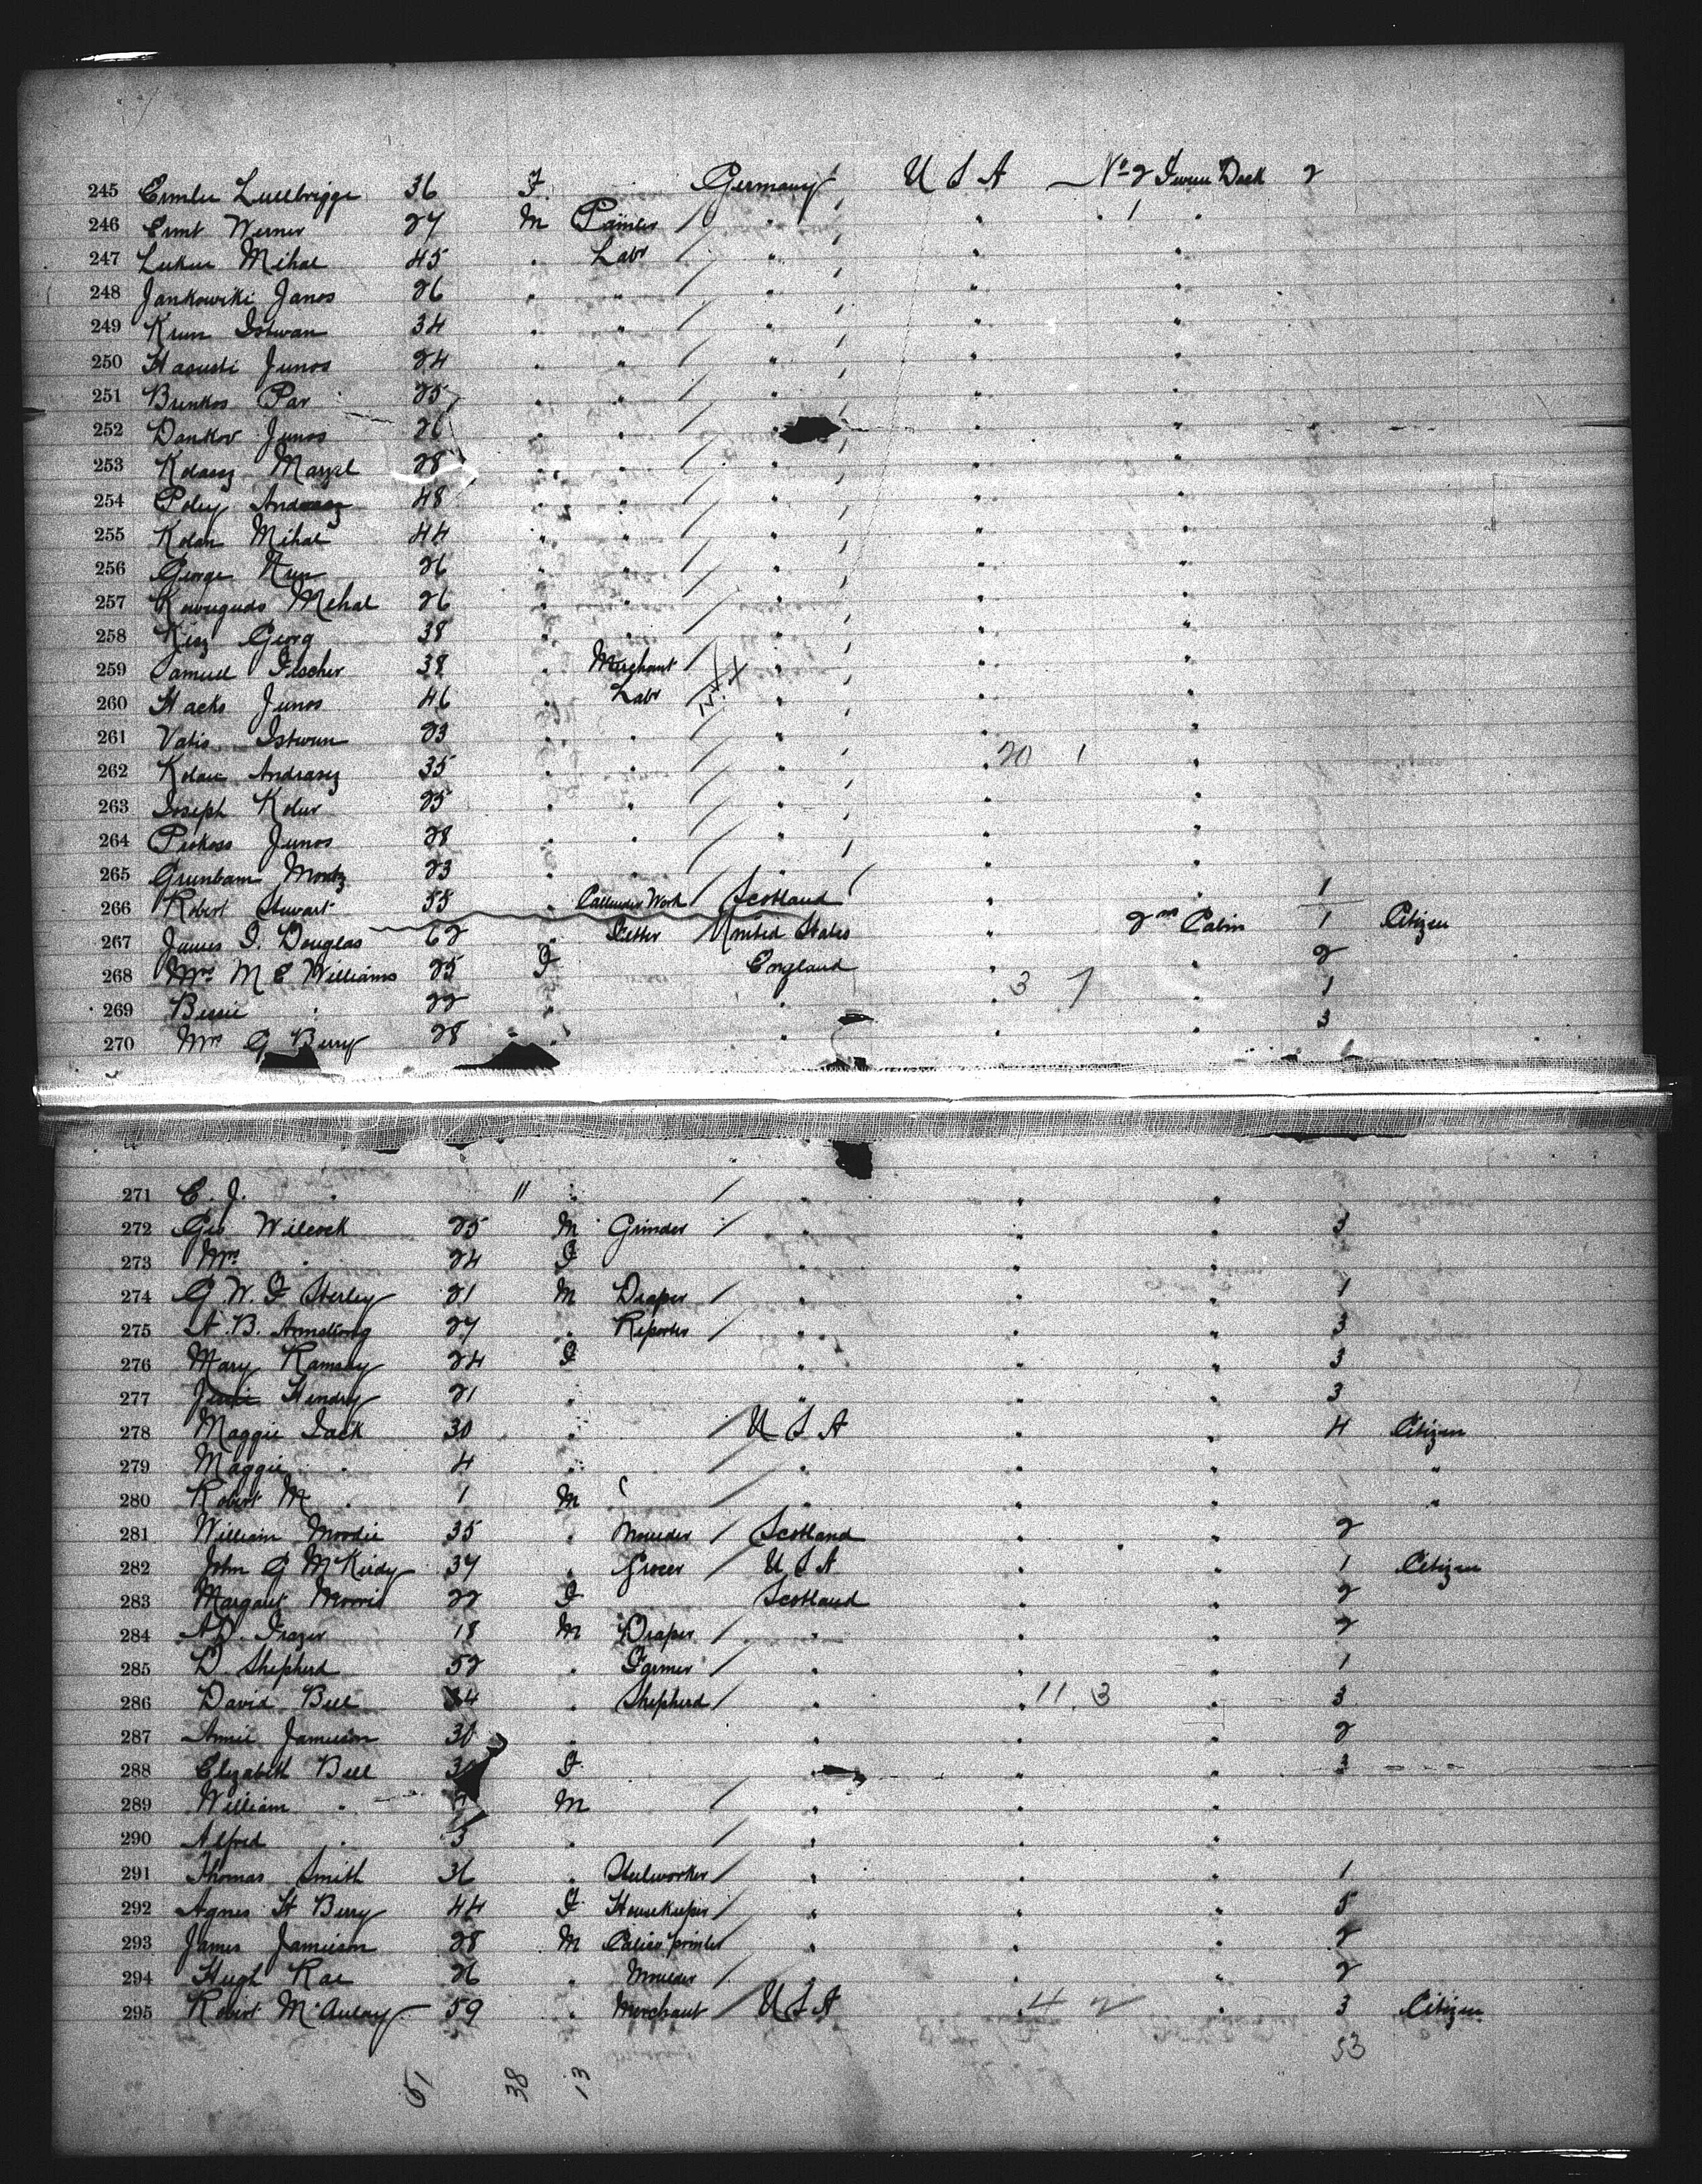 245 36 F Germany U S A No 2 Deck 2
246 Ernst Werner 27 M Painter / " " " 1 "
247 Mihal 45 " Labr / " " "
248 Jankowiki Janos 26 " " / " " "
249 Krun Istwan 34 " " / " " "
250 Junos 24 " " / " " "
251 Brinkos Par 25 " " / " " "
252 Dankov Junos 26 " " / " "
253 28 " " / " " "
254 Poley 48 " " / " " "
255 Kolan Mihal 44 " " / " " "
256 George 26 " " / " " "
257 Mihal 26 " " / " " "
258 Kisz Georg 38 " " / " " "
259 Samuel Fischer 38 " Merchant / " " "
260 Hacks Junos 46 " Labr " " "
261 Vatis Istwun 23 " " / " " "
262 Andrasz 35 " " / " " 20 1 "
263 Joseph 25 " " / " " "
264 Junos 28 " " / " " "
265 Grunbam Moritz 23 " " / " " "
266 Robert Stewart 55 " Callender Work / Scotland " " 1
267 James D. Douglas 62 " / United States " 2nd Cabin 1 Citizen
268 Mrs M E Williams 25 F England " " 2
269 Bessie " 22 " " " 3 7 " 1
270 Mrs G Berry 28 " " " " 3
271 E. J. " 11 " / " " "
272 Geo Wilcock 25 M Grinder / " " " 3
273 Mrs " 24 F " " "
274 G. W. F Sterley 21 M Draper / " " " 1
275 A. B. Armstrong 27 " Reporter / " " " 3
276 Mary Ramsay 24 F " " " 3
277 Hendry 21 " " " " 3
278 Maggie Jack 30 " / U S A " " 4 Citizen
279 Maggie " 4 " / " " " "
280 Robert M " 1 M / " " " "
281 William Moodie 35 " Moulder / Scotland " " 2
282 John G McKirdy 37 " Grocer / U S A " " 1 Citizen
283 Margaret Morris 22 F Scotland " " 2
284 A. D. Frazer 18 M Draper / " " " 2
285 D. Shepherd 52 " Farmer / " " " 1
286 David Bell 34 " Shepherd / " " 11 3 " 3
287 Annie Jamieson 30 " " " " 2
288 Elizabeth Bell 30 F " " " 3
289 William " M / " " "
290 Alfred " 3 " / " " "
291 Thomas Smith 36 " Steelworker / " " " 1
292 Agnes H Berry 44 F Housekeeper / " " " 5
293 James Jamieson 28 M Calico printer " " " 2
294 Hugh Rae 26 " Moulder / " " " 2
295 Robert McAulay 59 " Merchant / U S A " 4 2 " 3 Citizen
53
51 38 13